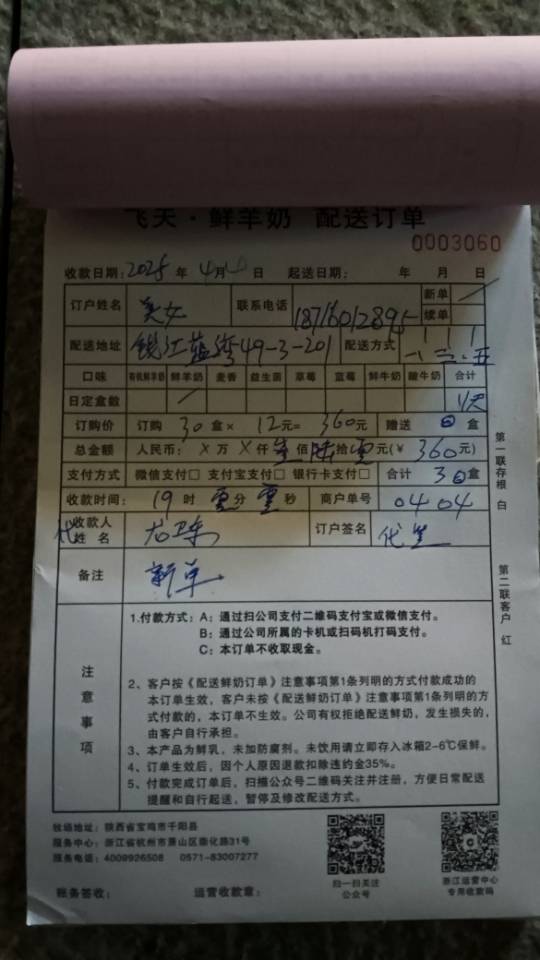 飞天·鲜羊奶 配送订单
0003060
收款日期:2025年4月4日 起送日期: 年 月 日
订户姓名 美女 联系电话 18716012895 新单 /
续单
配送地址 钱江蓝湾49-3-201 配送方式 一、三、五
口味 有机鲜羊奶 鲜羊奶 麦香 益生菌 草莓 蓝莓 鲜牛奶 酸牛奶 合计
日定盒数 / 1/天
订购价 订购 30 盒× 12元= 360元 赠送 0 盒
总金额 人民币: ×万 ×仟 叁佰 陆拾 零元(¥ 360元)
支付方式 微信支付□ 支付宝支付□ 银行卡支付□ 合计 30盒
收款时间: 19 时 零分 零秒 商户单号 0404
代收款人姓名 尤卫东 订户签名 代签
备注 新单
第一联存根 白
第二联客户 红
注意事项
1.付款方式:A:通过扫公司支付二维码支付宝或微信支付。
B:通过公司所属的卡机或扫码机打码支付。
C:本订单不收取现金。
2、客户按《配送鲜奶订单》注意事项第1条列明的方式付款成功的
本订单生效,客户未按《配送鲜奶订单》注意事项第1条列明的方
式付款的,本订单不生效。公司有权拒绝配送鲜奶,发生损失的,
由客户自行承担。
3、本产品为鲜乳,未加防腐剂。未饮用请立即存入冰箱2-6℃保鲜。
4、订单生效后,因个人原因退款扣除违约金35%。
5、付款完成订单后,扫描公众号二维码关注并注册,方便日常配送
提醒和自行起送,暂停及修改配送方式。
牧场地址:陕西省宝鸡市千阳县
服务中心:浙江省杭州市萧山区
服务电话:4009926508 0571-83007277
扫一扫关注
公众号
浙江运营中心
专用收款码
账务签收: 运营收款章: